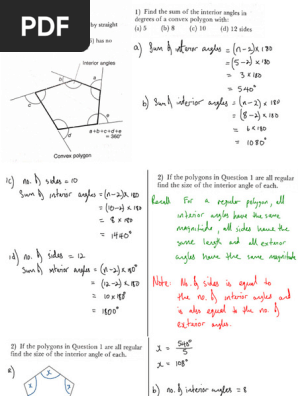 PDF
by straight
) has no
Interior angles
b
a
c
e
d
a+b+c+d+e
= 360°
Convex polygon
1) Find the sum of the interior angles in
degrees of a convex polygon with:
(a) 5 (b) 8 (c) 10 (d) 12 sides
a) Sum of interior angles = (n-2) × 180
= (5-2) × 180
= 3 × 180
= 540°
b) Sum of interior angles = (n-2) × 180
= (8-2) × 180
= 6 × 180
= 1080°
1c) no. of sides = 10
Sum of interior angles = (n-2) × 180
= (10-2) × 180
= 8 × 180
= 1440°
1d) no. of sides = 12
Sum of interior angles = (n-2) × 180°
= (12-2) × 180
= 10 × 180°
= 1800°
2) If the polygons in Question 1 are all regular
find the size of the interior angle of each.
a)
x x x
2) If the polygons in Question 1 are all regular
find the size of the interior angle of each.
Recall: For a regular polygon, all
interior angles have the same
magnitude, all sides have the
same length and all exterior
angles have the same magnitude
Note: No. of sides is equal to
the no. of interior angles and
is also equal to the no. of
exterior angles.
x = 540°
5
x = 108°
b) no. of interior angles = 8